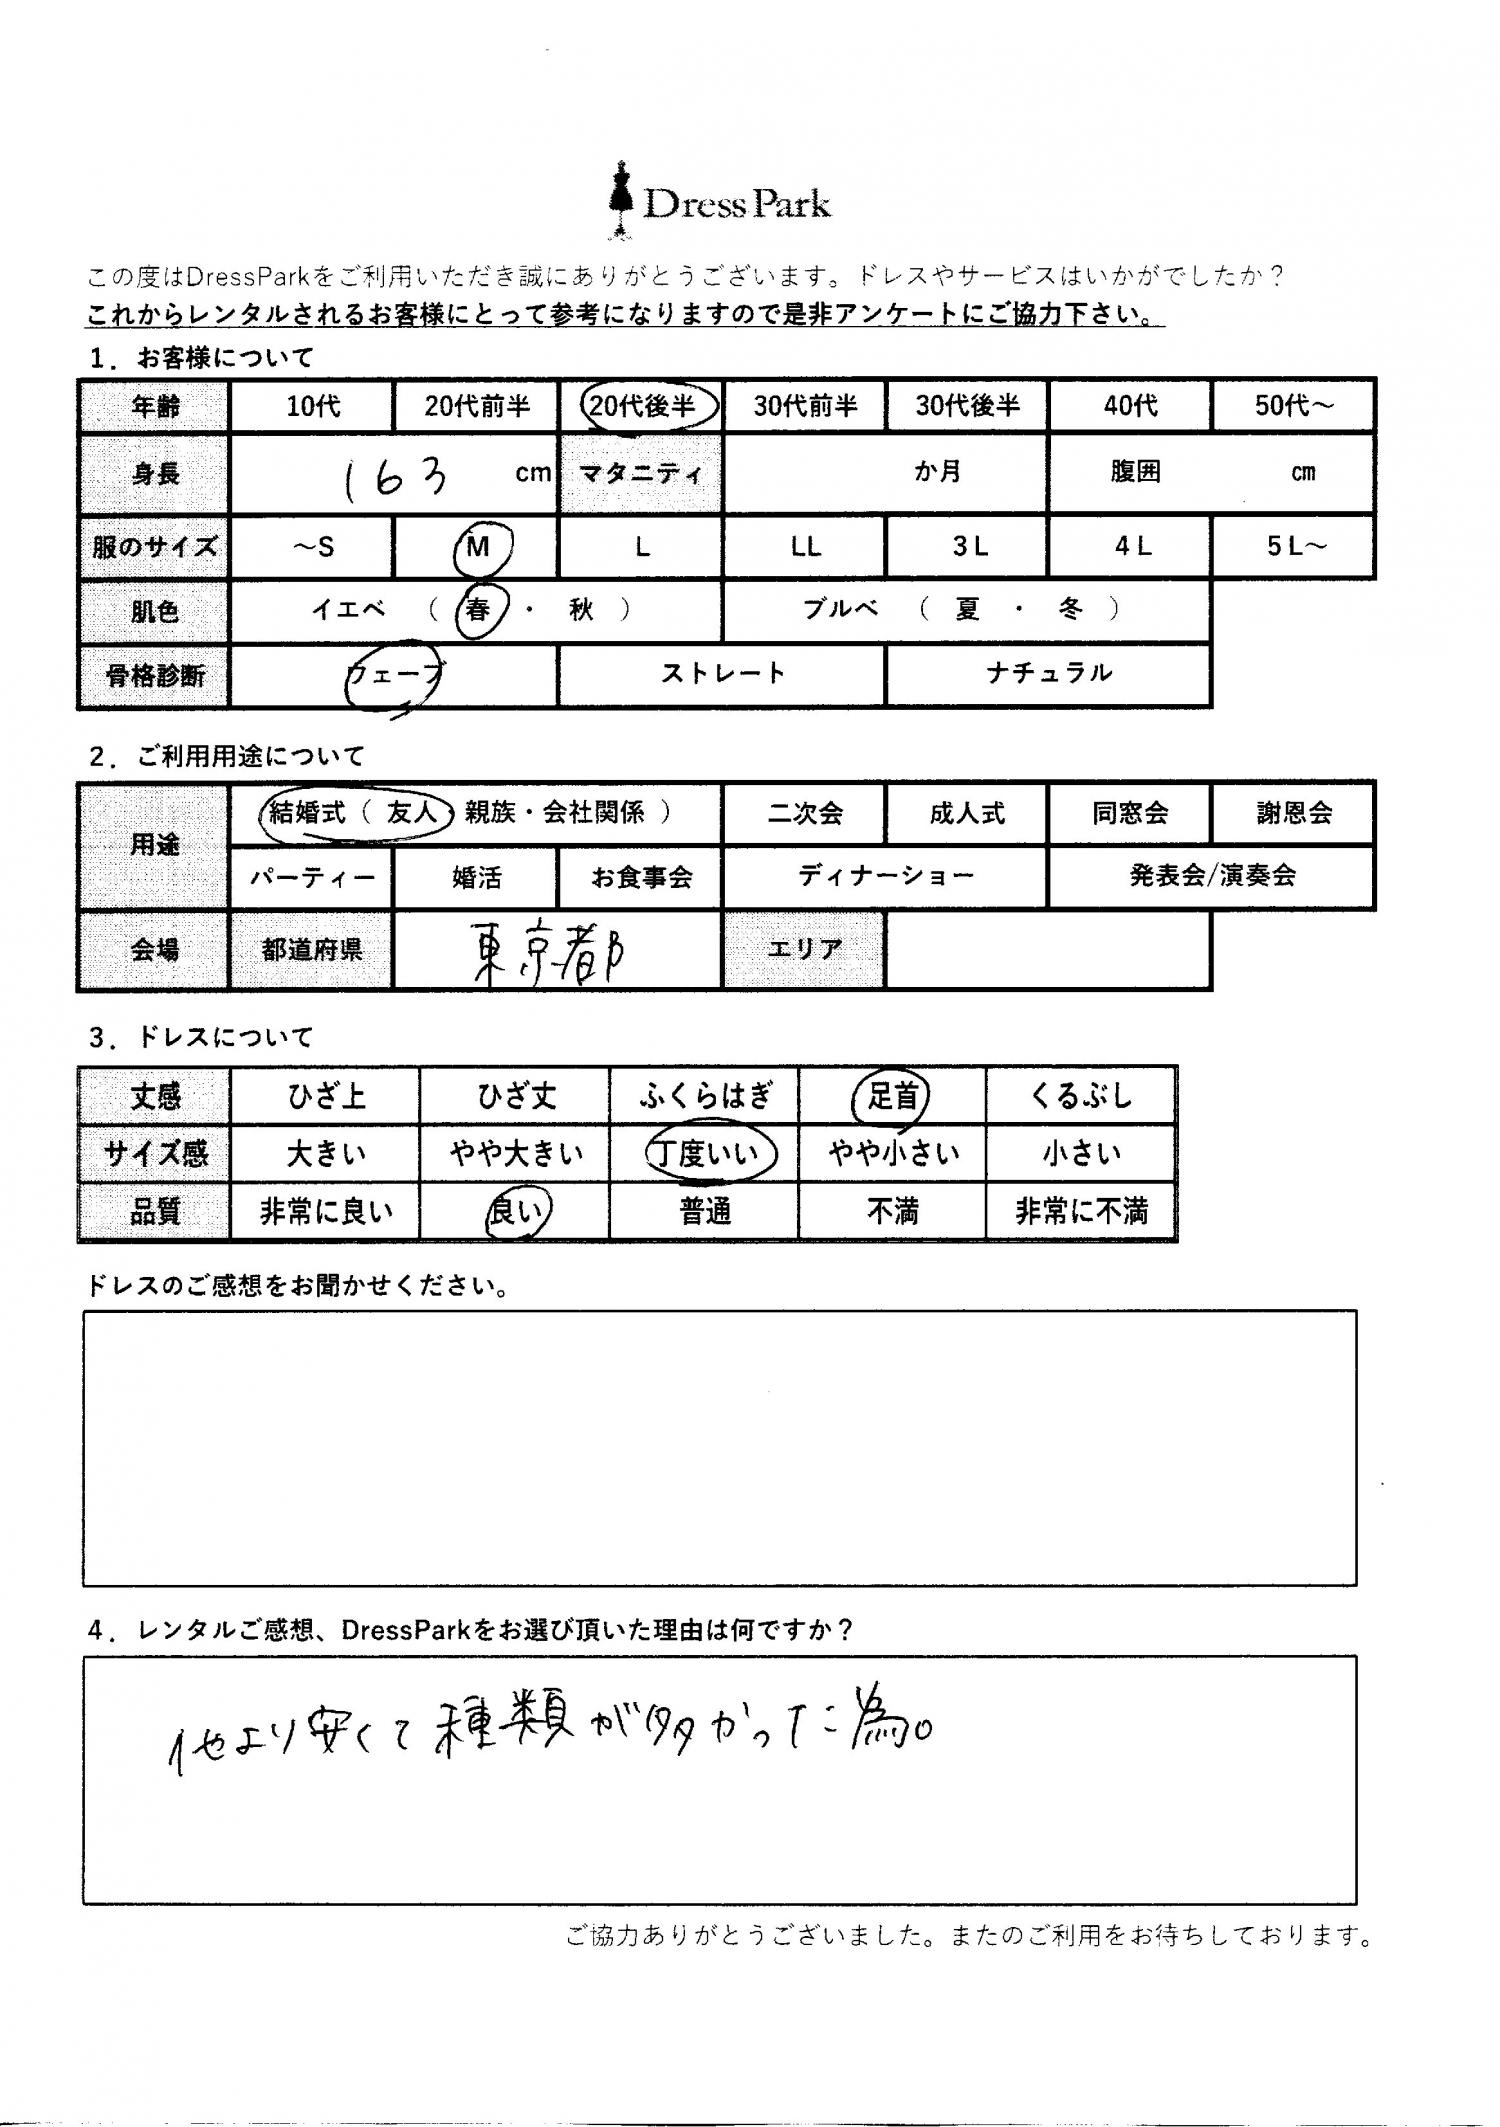 Dress Park
この度はDressParkをご利用いただき誠にありがとうございます。ドレスやサービスはいかがでしたか？
これからレンタルされるお客様にとって参考になりますので是非アンケートにご協力下さい。
1．お客様について
年齢 10代 20代前半 20代後半 30代前半 30代後半 40代 50代～
身長 163 cm マタニティ か月 腹囲 cm
服のサイズ ～S M L LL 3L 4L 5L～
肌色 イエベ （ 春 ・ 秋 ） ブルベ （ 夏 ・ 冬 ）
骨格診断 ウェーブ ストレート ナチュラル
2．ご利用用途について
用途 結婚式（ 友人・親族・会社関係 ） 二次会 成人式 同窓会 謝恩会
パーティー 婚活 お食事会 ディナーショー 発表会/演奏会
会場 都道府県 東京都 エリア
3．ドレスについて
丈感 ひざ上 ひざ丈 ふくらはぎ 足首 くるぶし
サイズ感 大きい やや大きい 丁度いい やや小さい 小さい
品質 非常に良い 良い 普通 不満 非常に不満
ドレスのご感想をお聞かせください。
4．レンタルご感想、DressParkをお選び頂いた理由は何ですか？
他より安くて種類が多かった為。
ご協力ありがとうございました。またのご利用をお待ちしております。